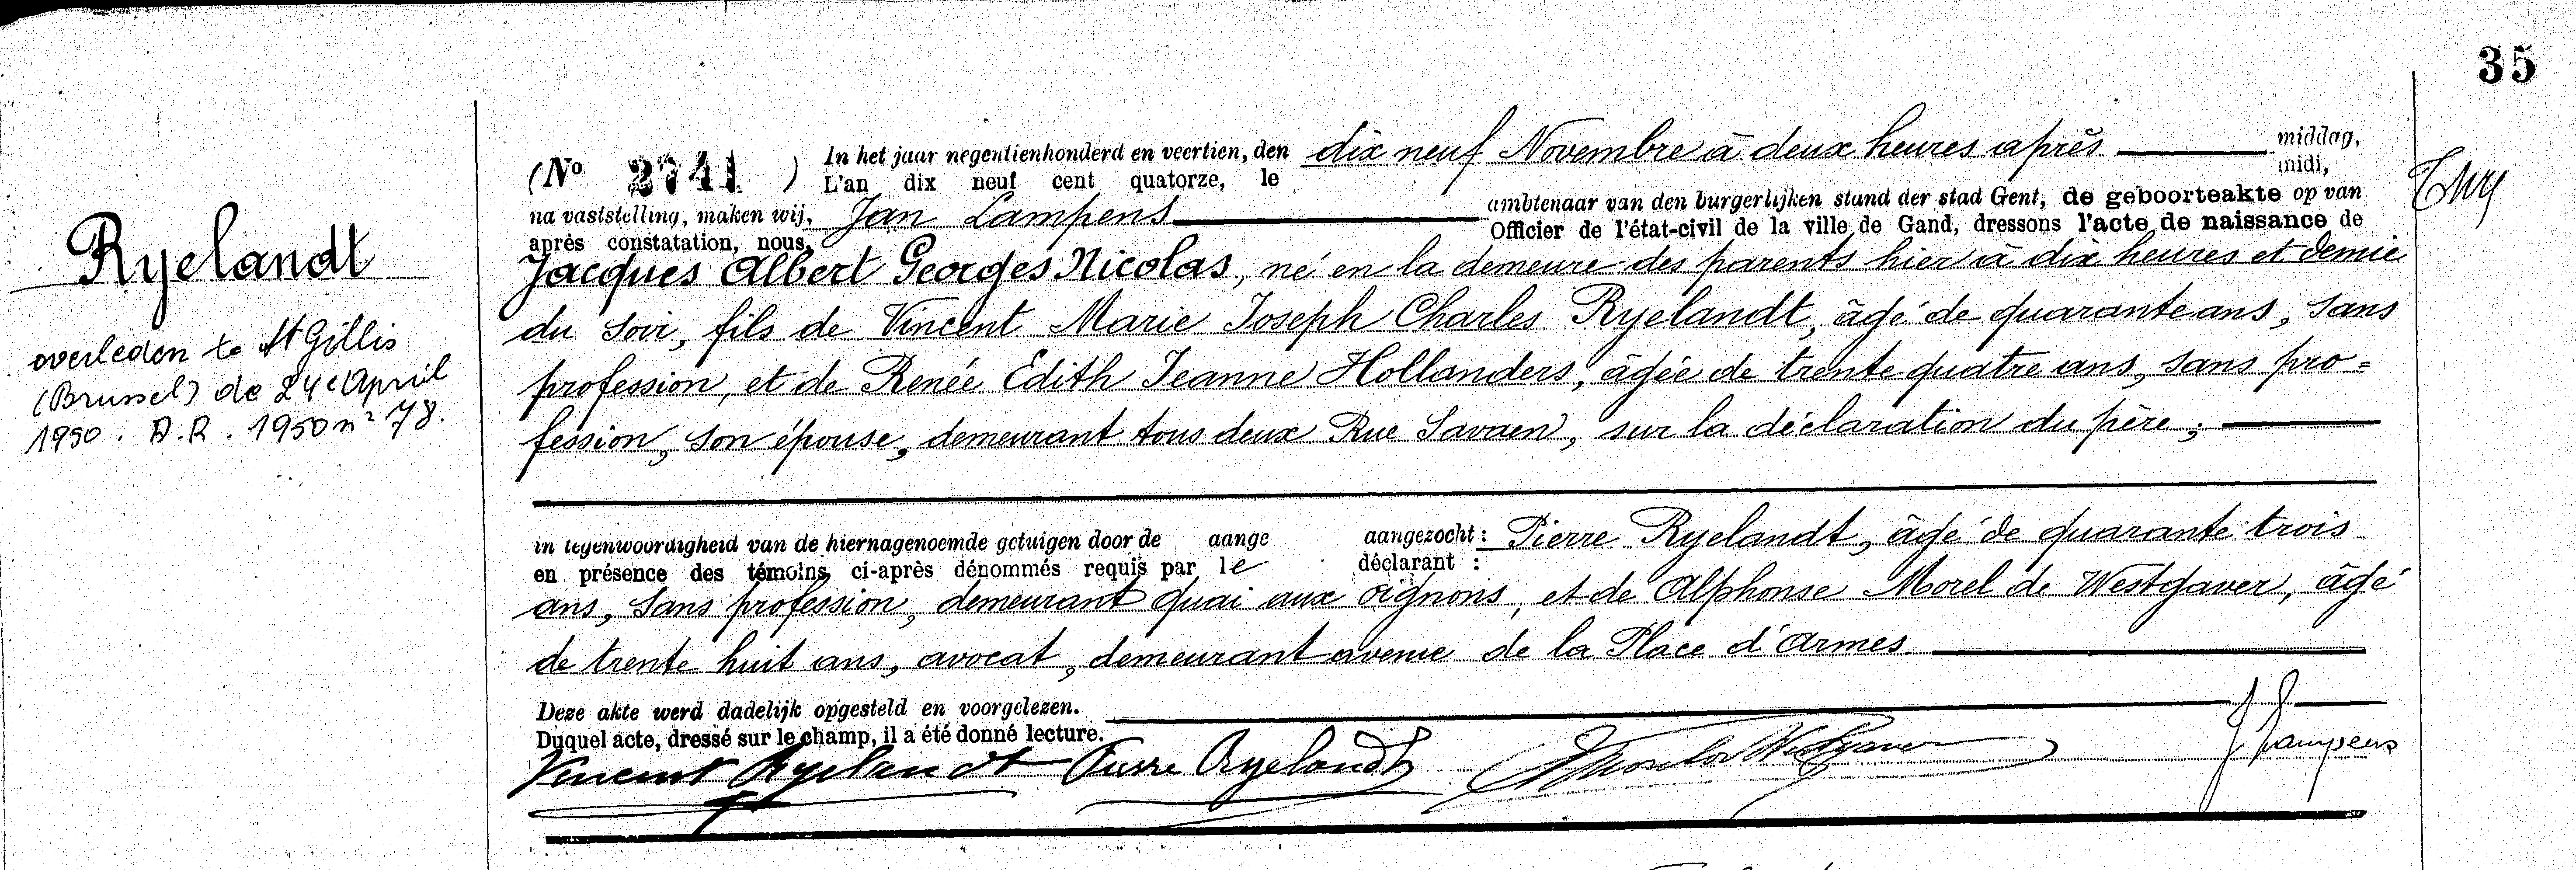 35
(No 2741) In het jaar negentienhonderd en veertien, den dix neuf Novembre à deux heures après middag,
L'an dix neuf cent quatorze, le midi,
na vaststelling, maken wij, Jan Lampens ambtenaar van den burgerlijken stand der stad Gent, de geboorteakte op van
après constatation, nous, Officier de l'état-civil de la ville de Gand, dressons l'acte de naissance de
Ryelandt
Jacques Albert Georges Nicolas, né en la demeure des parents hier à dix heures et demie
du soir, fils de Vincent Marie Joseph Charles Ryelandt, âgé de quarante ans, sans
profession, et de Renée Edith Jeanne Hollanders, âgée de trente quatre ans, sans pro=
fession, son épouse, demeurant tous deux Rue Savaen, sur la déclaration du père;
overleden te St Gillis
(Brussel) de 24e April
1950. A.R. 1950 no 78.
in tegenwoordigheid van de hiernagenoemde getuigen door de aange aangezocht: Pierre Ryelandt, âgé de quarante trois
en présence des témoins ci-après dénommés requis par le déclarant :
ans, sans profession, demeurant quai aux oignons, et de Alphonse Morel de Westgaver, âgé
de trente huit ans, avocat, demeurant avenue de la Place d'armes.
Deze akte werd dadelijk opgesteld en voorgelezen.
Duquel acte, dressé sur le champ, il a été donné lecture.
Vincent Ryelandt Pierre Ryelandt J Lampens